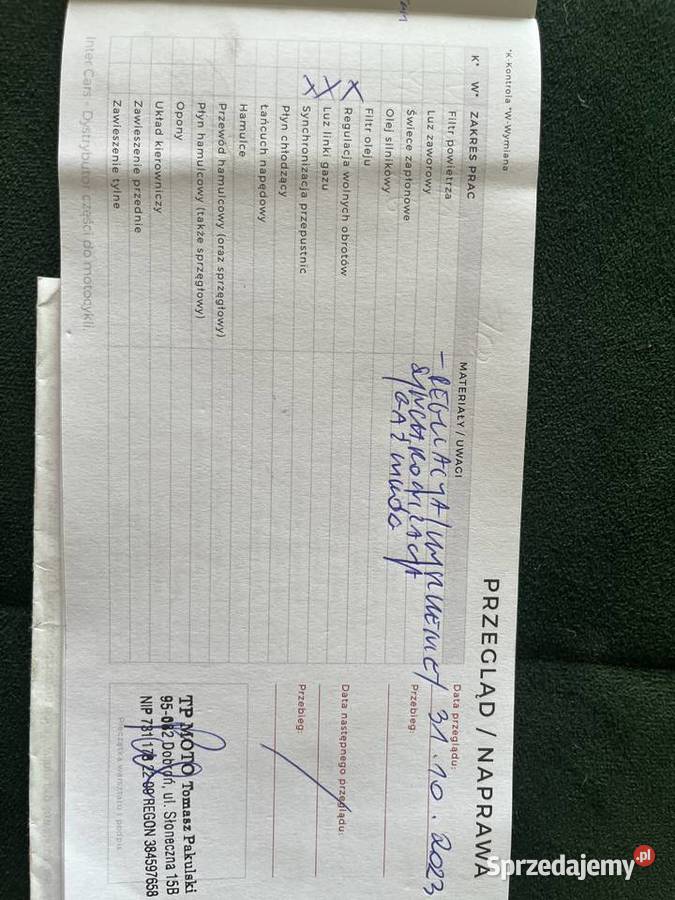 PRZEGLĄD / NAPRAWA
*K-Kontrola *W-Wymiana
K* W* ZAKRES PRAC
MATERIAŁY / UWAGI
Filtr powietrza
Luz zaworowy
Świece zapłonowe
Olej silnikowy
Filtr oleju
X Regulacja wolnych obrotów
X Luz linki gazu
X Synchronizacja przepustnic
Płyn chłodzący
Łańcuch napędowy
Hamulce
Przewód hamulcowy (oraz sprzęgłowy)
Płyn hamulcowy (także sprzęgłowy)
Opony
Układ kierowniczy
Zawieszenie przednie
Zawieszenie tylne
- REGULACJA /
SYNCHRONIZACJA
Data przeglądu:
31.10.2023
Przebieg:
Data następnego przeglądu:
Przebieg:
TP MOTO Tomasz Pakulski
95-082 Dobroń, ul. Słoneczna 15B
NIP 731 178 22 09/REGON 384597658
Pieczątka warsztatu i podpis
Inter Cars Dystrybutor części do motocykli
Sprzedajemy.pl